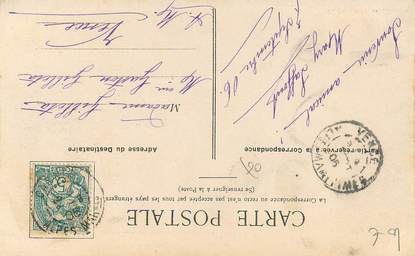 CARTE POSTALE
La correspondance au recto n'est pas acceptée par tous les pays étrangers
(Se renseigner à la Poste)
Partie réservée à la Correspondance
Adresse du Destinataire
Souvenir amical
Mary
7 Septembre 06
Madame Gilletta
Gilletta
Vence
A. My
VENCE
ALPES MARITIMES
20